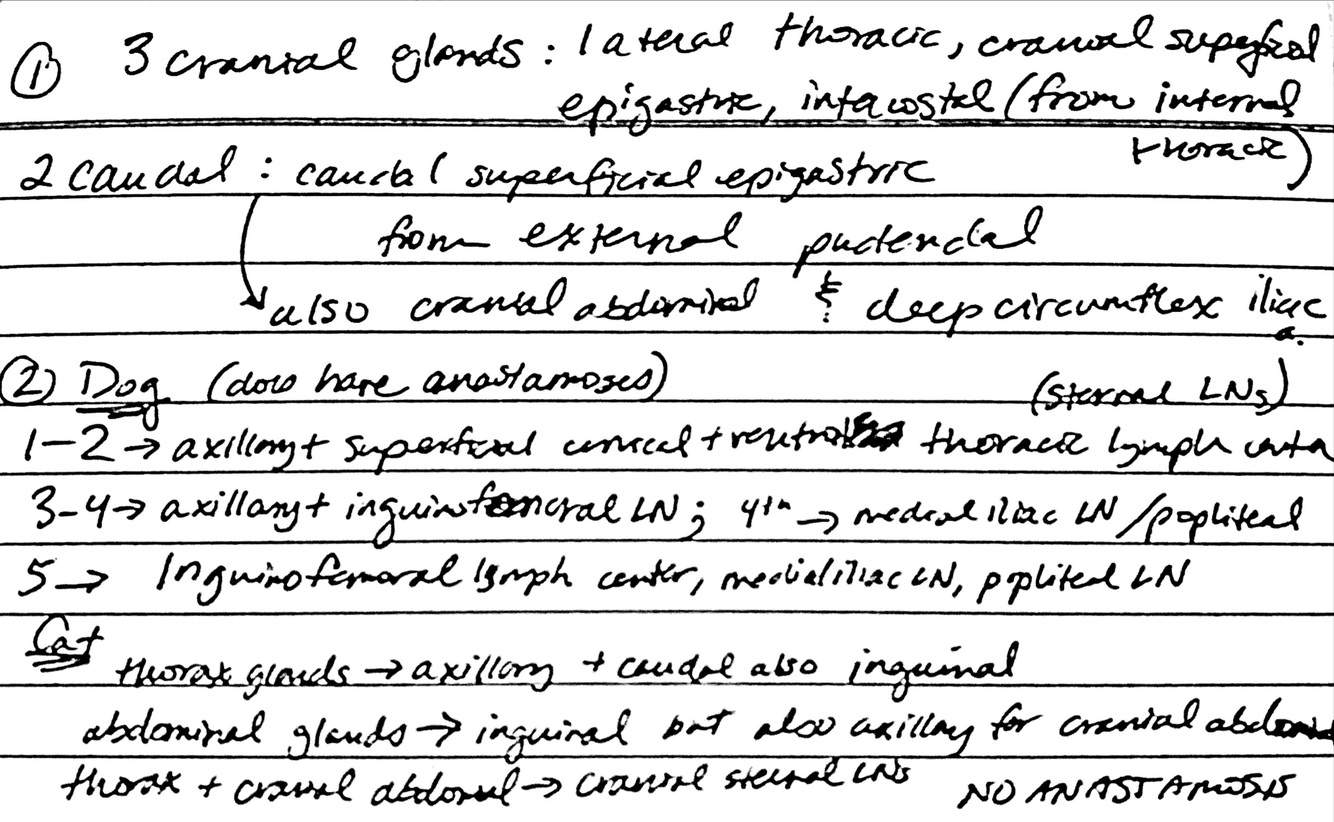 ① 3 cranial glands : lateral thoracic, cranial superficial
epigastric, intercostal (from internal
thoracic)
2 caudal : caudal superficial epigastric
from external pudendal
also cranial abdominal & deep circumflex iliac
a.
② Dog (dow have anastamoses) (sternal LNs)
1-2 → axillary + superficial cervical + ventral thoracic lymph
3-4 → axillary + inguinofemoral LN ; 4th → medial iliac LN / popliteal
5 → Inguinofemoral lymph center, medial iliac LN, popliteal LN
Cat
thorax glands → axillary + caudal also inguinal
abdominal glands → inguinal but also axillary for cranial abdominal
thorax + cranial abdomnl → cranial sternal LNs NO ANASTAMOSIS